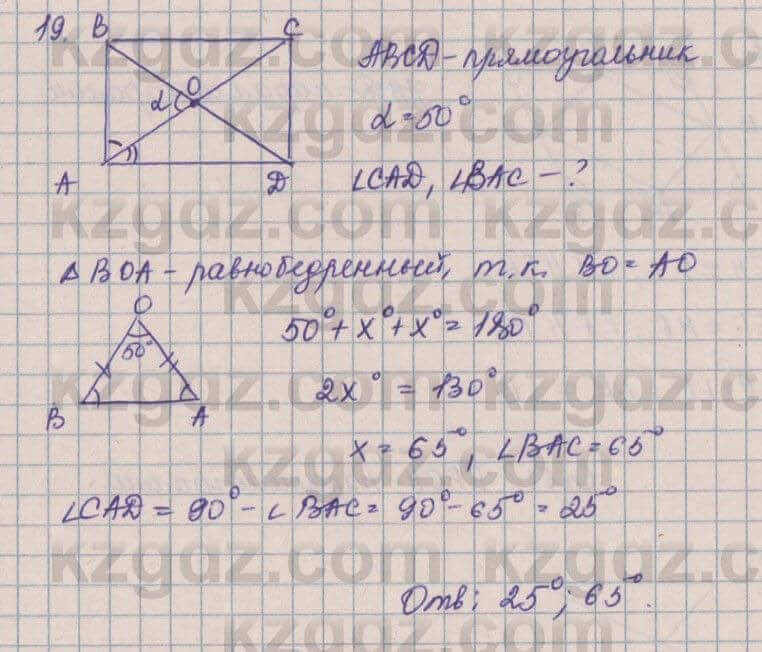 19.
B C
ABCD - прямоугольник
O
α
α = 50°
A D
∠CAD, ∠BAC - ?
△BOA - равнобедренный, т.к. BO = AO
O
50°
50° + x° + x° = 180°
2x° = 130°
B A
x = 65°, ∠BAC = 65°
∠CAD = 90° - ∠BAC = 90° - 65° = 25°
Отв: 25°; 65°.
kzgdz.com